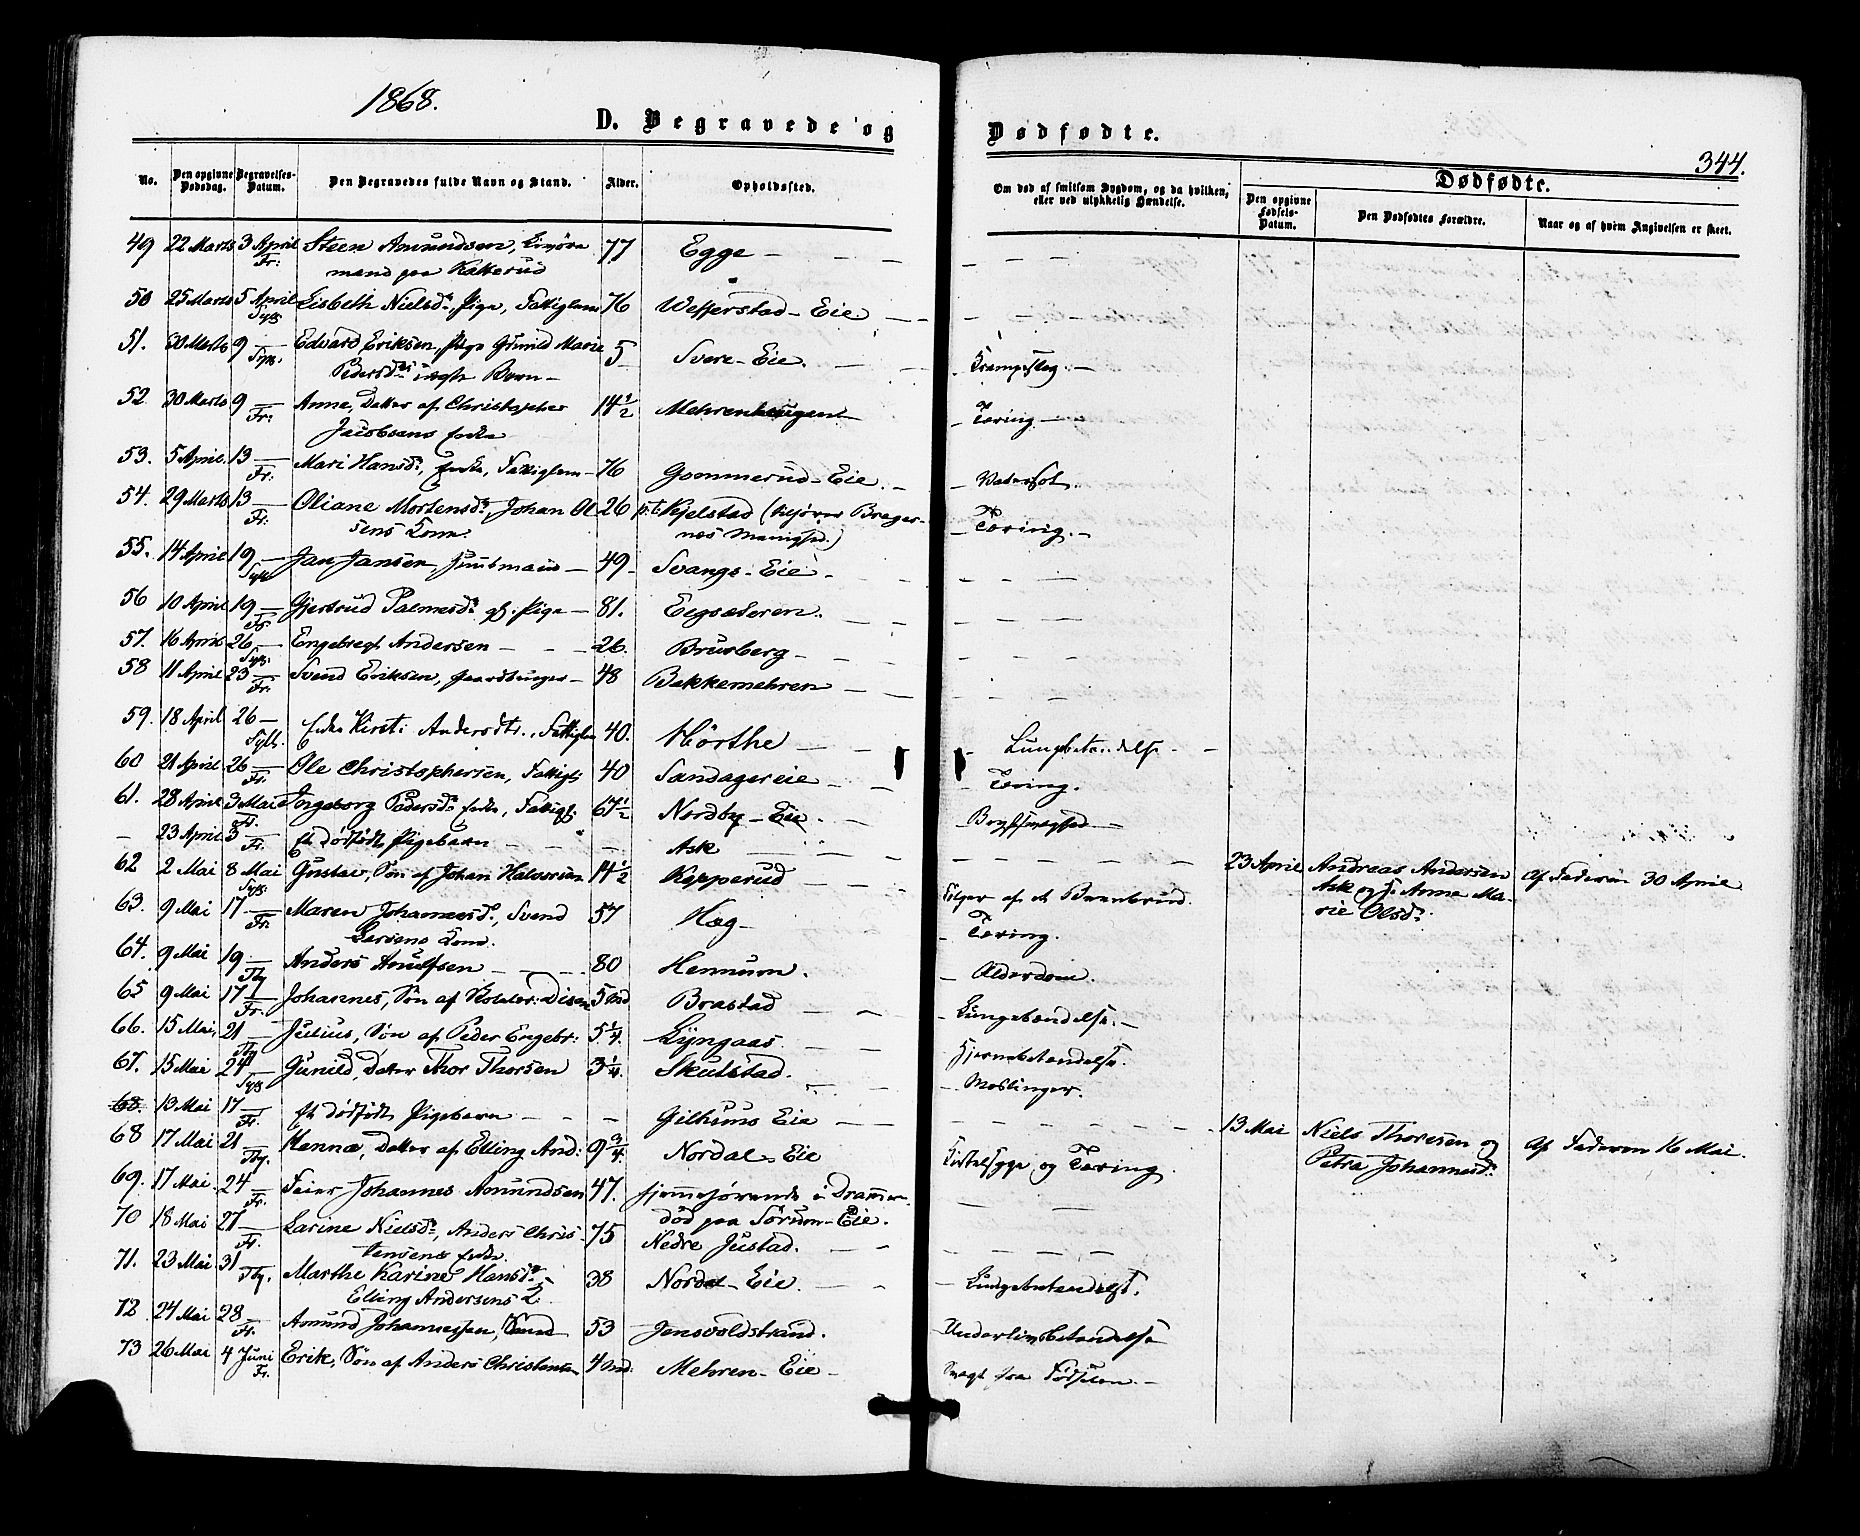 1868.
D. Begravede og Dødfødte.
344.
No.
Den opgivne Dødsdag.
Begravelses-Datum.
Den Begravedes fulde Navn og Stand.
Alder.
Opholdssted.
Om død af smitsom Sygdom, og da hvilken, eller ved ulykkelig Hændelse.
Dødfødte.
Den opgivne Fødsels-Datum.
Den Dødfødtes Forældre.
Naar og af hvem Angivelsen er skeet.
49 22 Marts 3 April Steen Amundsen, 77 Egge
Fr: mand paa Katterud
50 25 Marts 5 April Lisbeth Nielsd:, Pige, Fattiglem 76 Wefferstad-Eie
Sylh
51. 30 Marts 9 Edvard Eriksen, Pige Gunild Marie 5 Svere-Eie. Krampeslag.
Sylh. Pedersd: uægte Barn
52 30 Marts 9 Anne, Datter af Christopher 14 1/2 Mehrenhaugen Tæring
Fr: Jacobsens Enke
53. 5 April 13 Mari Hansd:, Enke, Fattiglem 76 Gommerud-Eie. Vatersot.
Fr:
54. 29 Marts 13 Oliane Mortensd:, Johan Ol 26 p.t. Kjelstad (tilhører Brager- Tæring.
Fr. sens Kone. næs Menighed.)
55. 14 April 19 Jan Jansen, Huusmand 49 Svangs-Eie
Sylh
56 10 April 19 Gjertrud Palmesd: gl. Pige 81. Eegsæteren.
Fr.
57. 16 April 26 Engebregt Andersen 26. Brusberg
Sylh.
58 11 April 23 Svend Eriksen, Gaardbruger 48 Bakkemehren
Fr.
59. 18 April 26 Enke Kirsti Andersdt., Fattiglem 40. Hörthe Lungebetændelse
Sylh.
60 21 April 26 Ole Christophersen, Fattigl: 40 Sandagereie Tæring.
Fr.
61. 28 April 3 Mai Ingeborg Pedersd: Enke, Fattigl: 67 1/2 Nordby-Eie. Brystsvaghed
Fr.
23 April 3 Et dødfødt Pigebarn Ask 23 April Andreas Andersen Af Faderen 30 April
Fr. Ask og H. Anne Ma-
rie Olsd:.
62 2 Mai 8 Mai Gustav, Søn af Johan Halvorsen 14 1/2 Kopperud Følger af et Beenbrud.
Sylh.
63. 9 Mai 17 Maren Johannesd:, Svend 57 Hæg Tæring.
Fr. Larsens Kone.
64. 9 Mai 19 Anders Anulfsen 80 Hennum. Alderdom.
65 9 Mai 17 Johannes, Søn af Disen 5 Md Brastad Lungebetændelse.
Fr.
66. 15 Mai 21 Julius, Søn af Peder Engebr: 5 1/4. Lyngaas Hjernebetændelse.
67. 15 Mai 24 Gunild, Datter Thor Thorsen 3 1/4. Skulstad. Meslinger.
Sylh
68. 13 Mai 17 Et dødfødt Pigebarn Gilhuus Eie 13 Mai Niels Thoresen og Af Faderen 16 Mai.
Fr. Petra Johannesd:
68 17 Mai 21 Hanna, Datter af Elling And: 9 3/4. Nordal-Eie Kirtelsyge og Tæring.
69. 17 Mai 24 Feier Johannes Amundsen 47. hjemmehørende i Drammen
Fr. död paa Sørum-Eie.
70 18 Mai 27 Larine Nielsd:, Anders Chris- 75 Nedre Justad.
Fr. tensens Enke.
71. 23 Mai 31 Marthe Karine Hansd: 38 Nordal-Eie. Lungebetændelse.
Elling Andersens K.
72 24 Mai 28 Amund Johannessen, 53 Jensvoldstrand. Underlivsbetændelse
Fr.
73 26 Mai 4 Juni Erik, Søn af Anders Christensen 4 Md. Mehren-Eie Svagt fra Fødselen.
Fr.